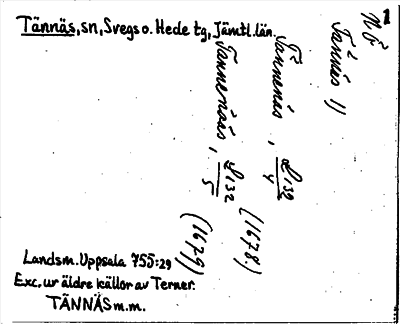 Tännäs, sn, Svegs o. Hede tg, Jämtl. län.
1
N Ö
Tännäs 1)
Tännenäs, L 132/4 (1678)
Tännenääs, L 132/5 (1679)
Landsm. Uppsala 755:29
Exc. ur äldre källor av Terner.
TÄNNÄS m.m.